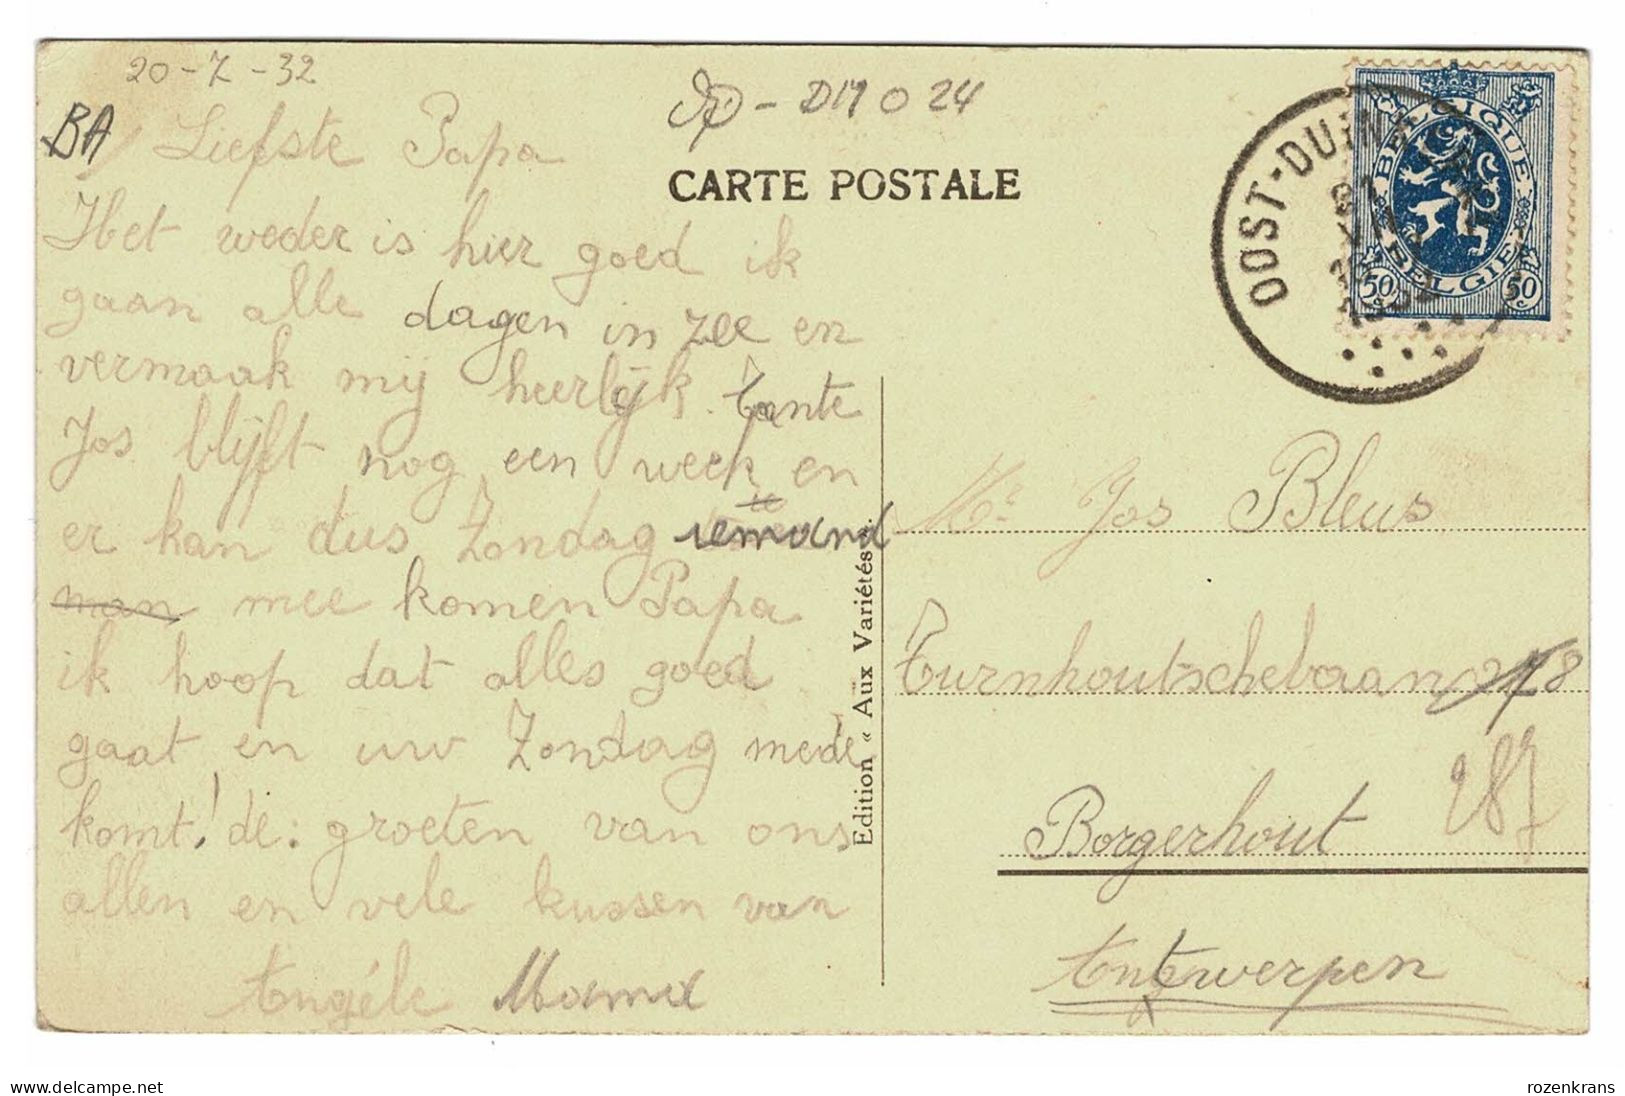 20-7-32
BA
DM 0 24
Liefste Papa
CARTE POSTALE
Het weder is hier goed ik
gaan alle dagen in zee en
vermaak mij heerlijk. tante
Jos blijft nog een week en
er kan dus Zondag iemand
man mee komen Papa
ik hoop dat alles goed
gaat en uw Zondag mede
komt! de: groeten van ons
allen en vele kussen van
Angéle Mama
Edition « Aux Variétés ».
OOST-DUIN
BELGIQUE
BELGIË
50c 50c
Mr Jos Bleus
Turnhoutschebaan 278
287
Borgerhout
Antwerpen
delcampe.net
rozenkrans